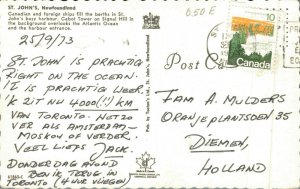 ST. JOHN'S, Newfoundland
Canadian and foreign ships fill the berths in St.
John's busy harbour. Cabot Tower on Signal Hill in
the background overlooks the Atlantic Ocean
and the harbour entrance.
25/9/73
ST. JOHN IS PRACHTIG
RIGHT ON THE OCEAN.
IT IS PRACHTIG WEER.
K ZIT NU 4000(!!) KM
VAN TORONTO. NET ZO
VER ALS AMSTERDAM-
MOSKOU OF VERDER.
VEEL LIEFS JACK.
DONDERDAG AVOND
BEN IK TERUG IN
TORONTO (4 UUR VLIEGEN)
650E
10
Post C
FAM A. MULDERS
ORANJEPLANTSOEN 35
DIEMEN,
HOLLAND